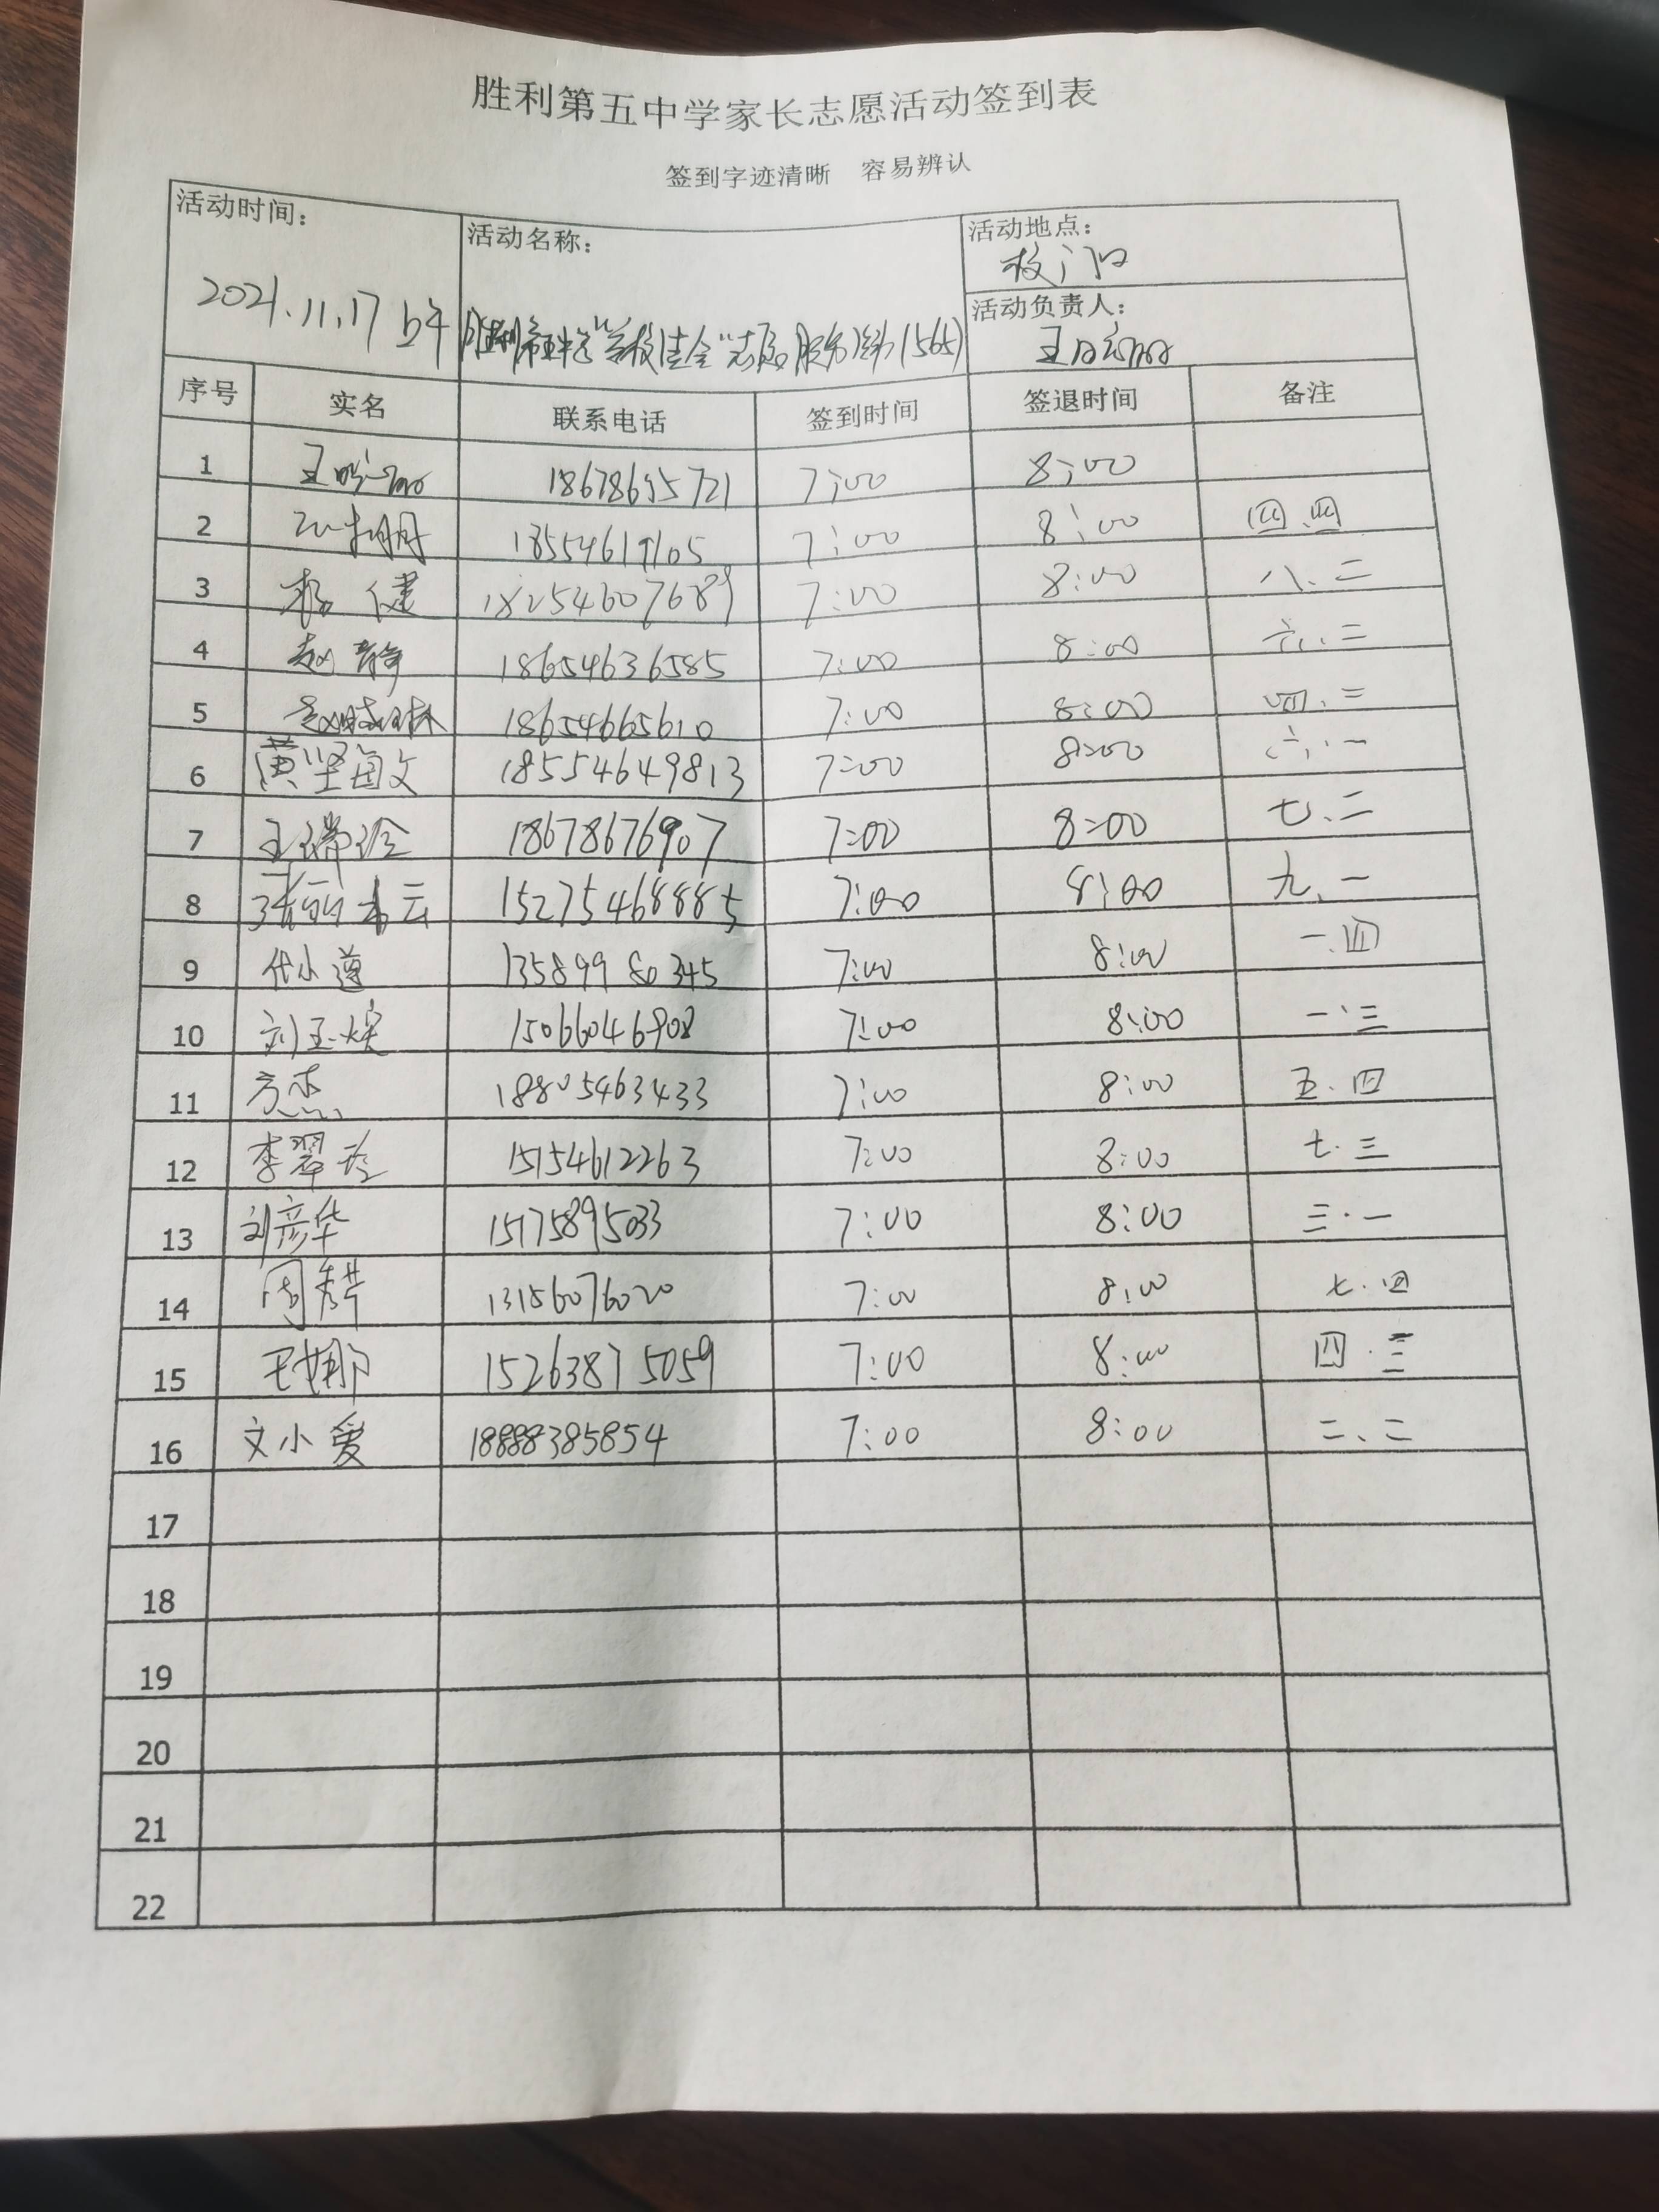 胜利第五中学家长志愿活动签到表
签到字迹清晰 容易辨认
活动时间:
2021.11.17 上午
活动名称:
胜利第五中学"学校" 志愿服务 (565)
活动地点:
校门口
活动负责人:
王
序号 实名 联系电话 签到时间 签退时间 备注
1 王 18678695721 7:00 8:00
2 18554619105 7:00 8:00 四、四
3 杨健 18254607689 7:00 8:00 八、二
4 赵静 18654636585 7:00 8:00 六、二
5 赵 18654665610 7:00 8:00 四、二
6 黄 文 18554649813 7:00 8:00 六、一
7 王瑞玲 18678676907 7:00 8:00 七、二
8 张丽 云 15275468885 7:00 8:00 九、一
9 代小遵 13589980345 7:00 8:00 一、四
10 刘玉 15066046908 7:00 8:00 一、三
11 方杰 18805463433 7:00 8:00 五.四
12 李翠玲 15154612263 7:00 8:00 七.三
13 刘彦华 15175895033 7:00 8:00 三.一
14 周 13156076020 7:00 8:00 七.四
15 王娜 15263875059 7:00 8:00 四.三
16 文小爱 18888385854 7:00 8:00 二、二
17
18
19
20
21
22